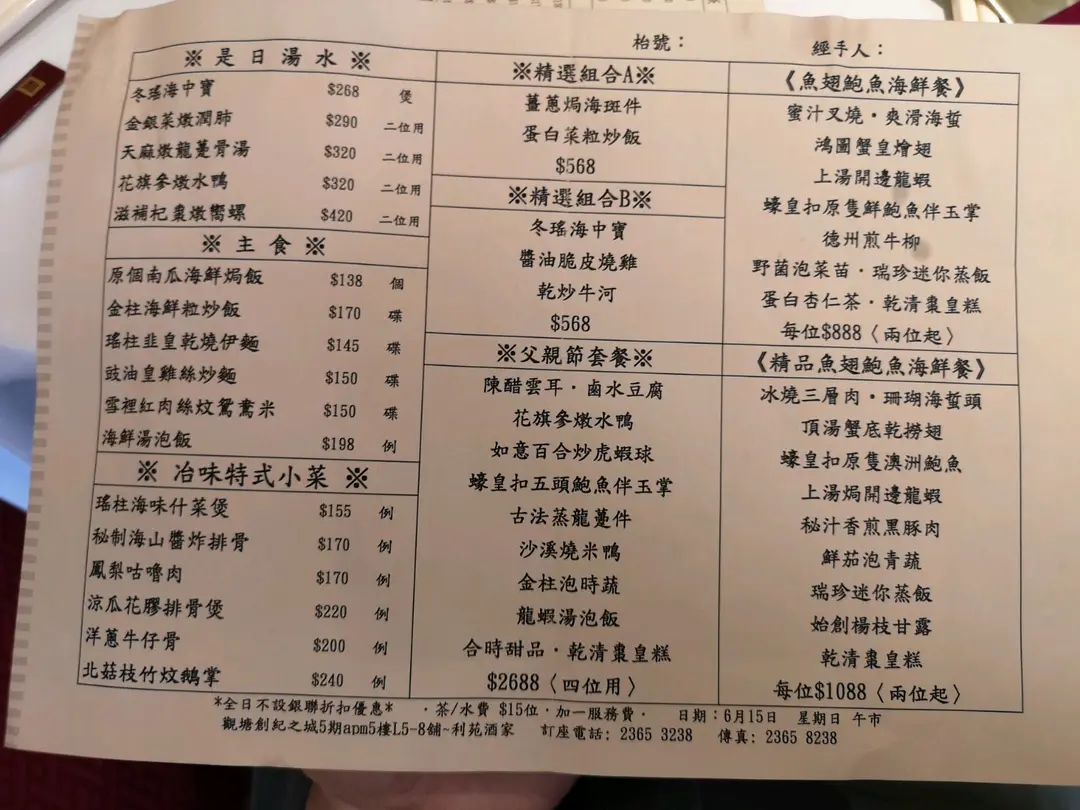 枱號：
經手人：
※ 是 日 湯 水 ※
冬瑤海中寶 $268 煲
金銀菜燉潤肺 $290 二位用
天麻燉龍躉骨湯 $320 二位用
花旗參燉水鴨 $320 二位用
滋補杞棗燉嚮螺 $420 二位用
※ 主 食 ※
原個南瓜海鮮焗飯 $138 個
金柱海鮮粒炒飯 $170 碟
瑤柱韭皇乾燒伊麵 $145 碟
豉油皇雞絲炒麵 $150 碟
雪裡紅肉絲炆鴛鴦米 $150 碟
海鮮湯泡飯 $198 例
※ 冶味特式小菜 ※
瑤柱海味什菜煲 $155 例
秘制海山醬炸排骨 $170 例
鳳梨咕嚕肉 $170 例
涼瓜花膠排骨煲 $220 例
洋蔥牛仔骨 $200 例
北菇枝竹炆鵝掌 $240 例
※精選組合A※
薑蔥焗海斑件
蛋白菜粒炒飯
$568
※精選組合B※
冬瑤海中寶
醬油脆皮燒雞
乾炒牛河
$568
※父親節套餐※
陳醋雲耳・鹵水豆腐
花旗參燉水鴨
如意百合炒虎蝦球
蠔皇扣五頭鮑魚伴玉掌
古法蒸龍躉件
沙溪燒米鴨
金柱泡時蔬
龍蝦湯泡飯
合時甜品・乾清棗皇糕
$2688〈四位用〉
《魚翅鮑魚海鮮餐》
蜜汁叉燒・爽滑海蜇
鴻圖蟹皇燴翅
上湯開邊龍蝦
蠔皇扣原隻鮮鮑魚伴玉掌
德州煎牛柳
野菌泡菜苗・瑞珍迷你蒸飯
蛋白杏仁茶・乾清棗皇糕
每位$888〈兩位起〉
《精品魚翅鮑魚海鮮餐》
冰燒三層肉・珊瑚海蜇頭
頂湯蟹底乾撈翅
蠔皇扣原隻澳洲鮑魚
上湯焗開邊龍蝦
秘汁香煎黑豚肉
鮮茄泡青蔬
瑞珍迷你蒸飯
始創楊枝甘露
乾清棗皇糕
每位$1088〈兩位起〉
*全日不設銀聯折扣優惠* ・茶/水費 $15位・加一服務費・ 日期：6月15日 星期日 午市
觀塘創紀之城5期apm5樓L5-8舖~利苑酒家 訂座電話: 2365 3238 傳真: 2365 8238